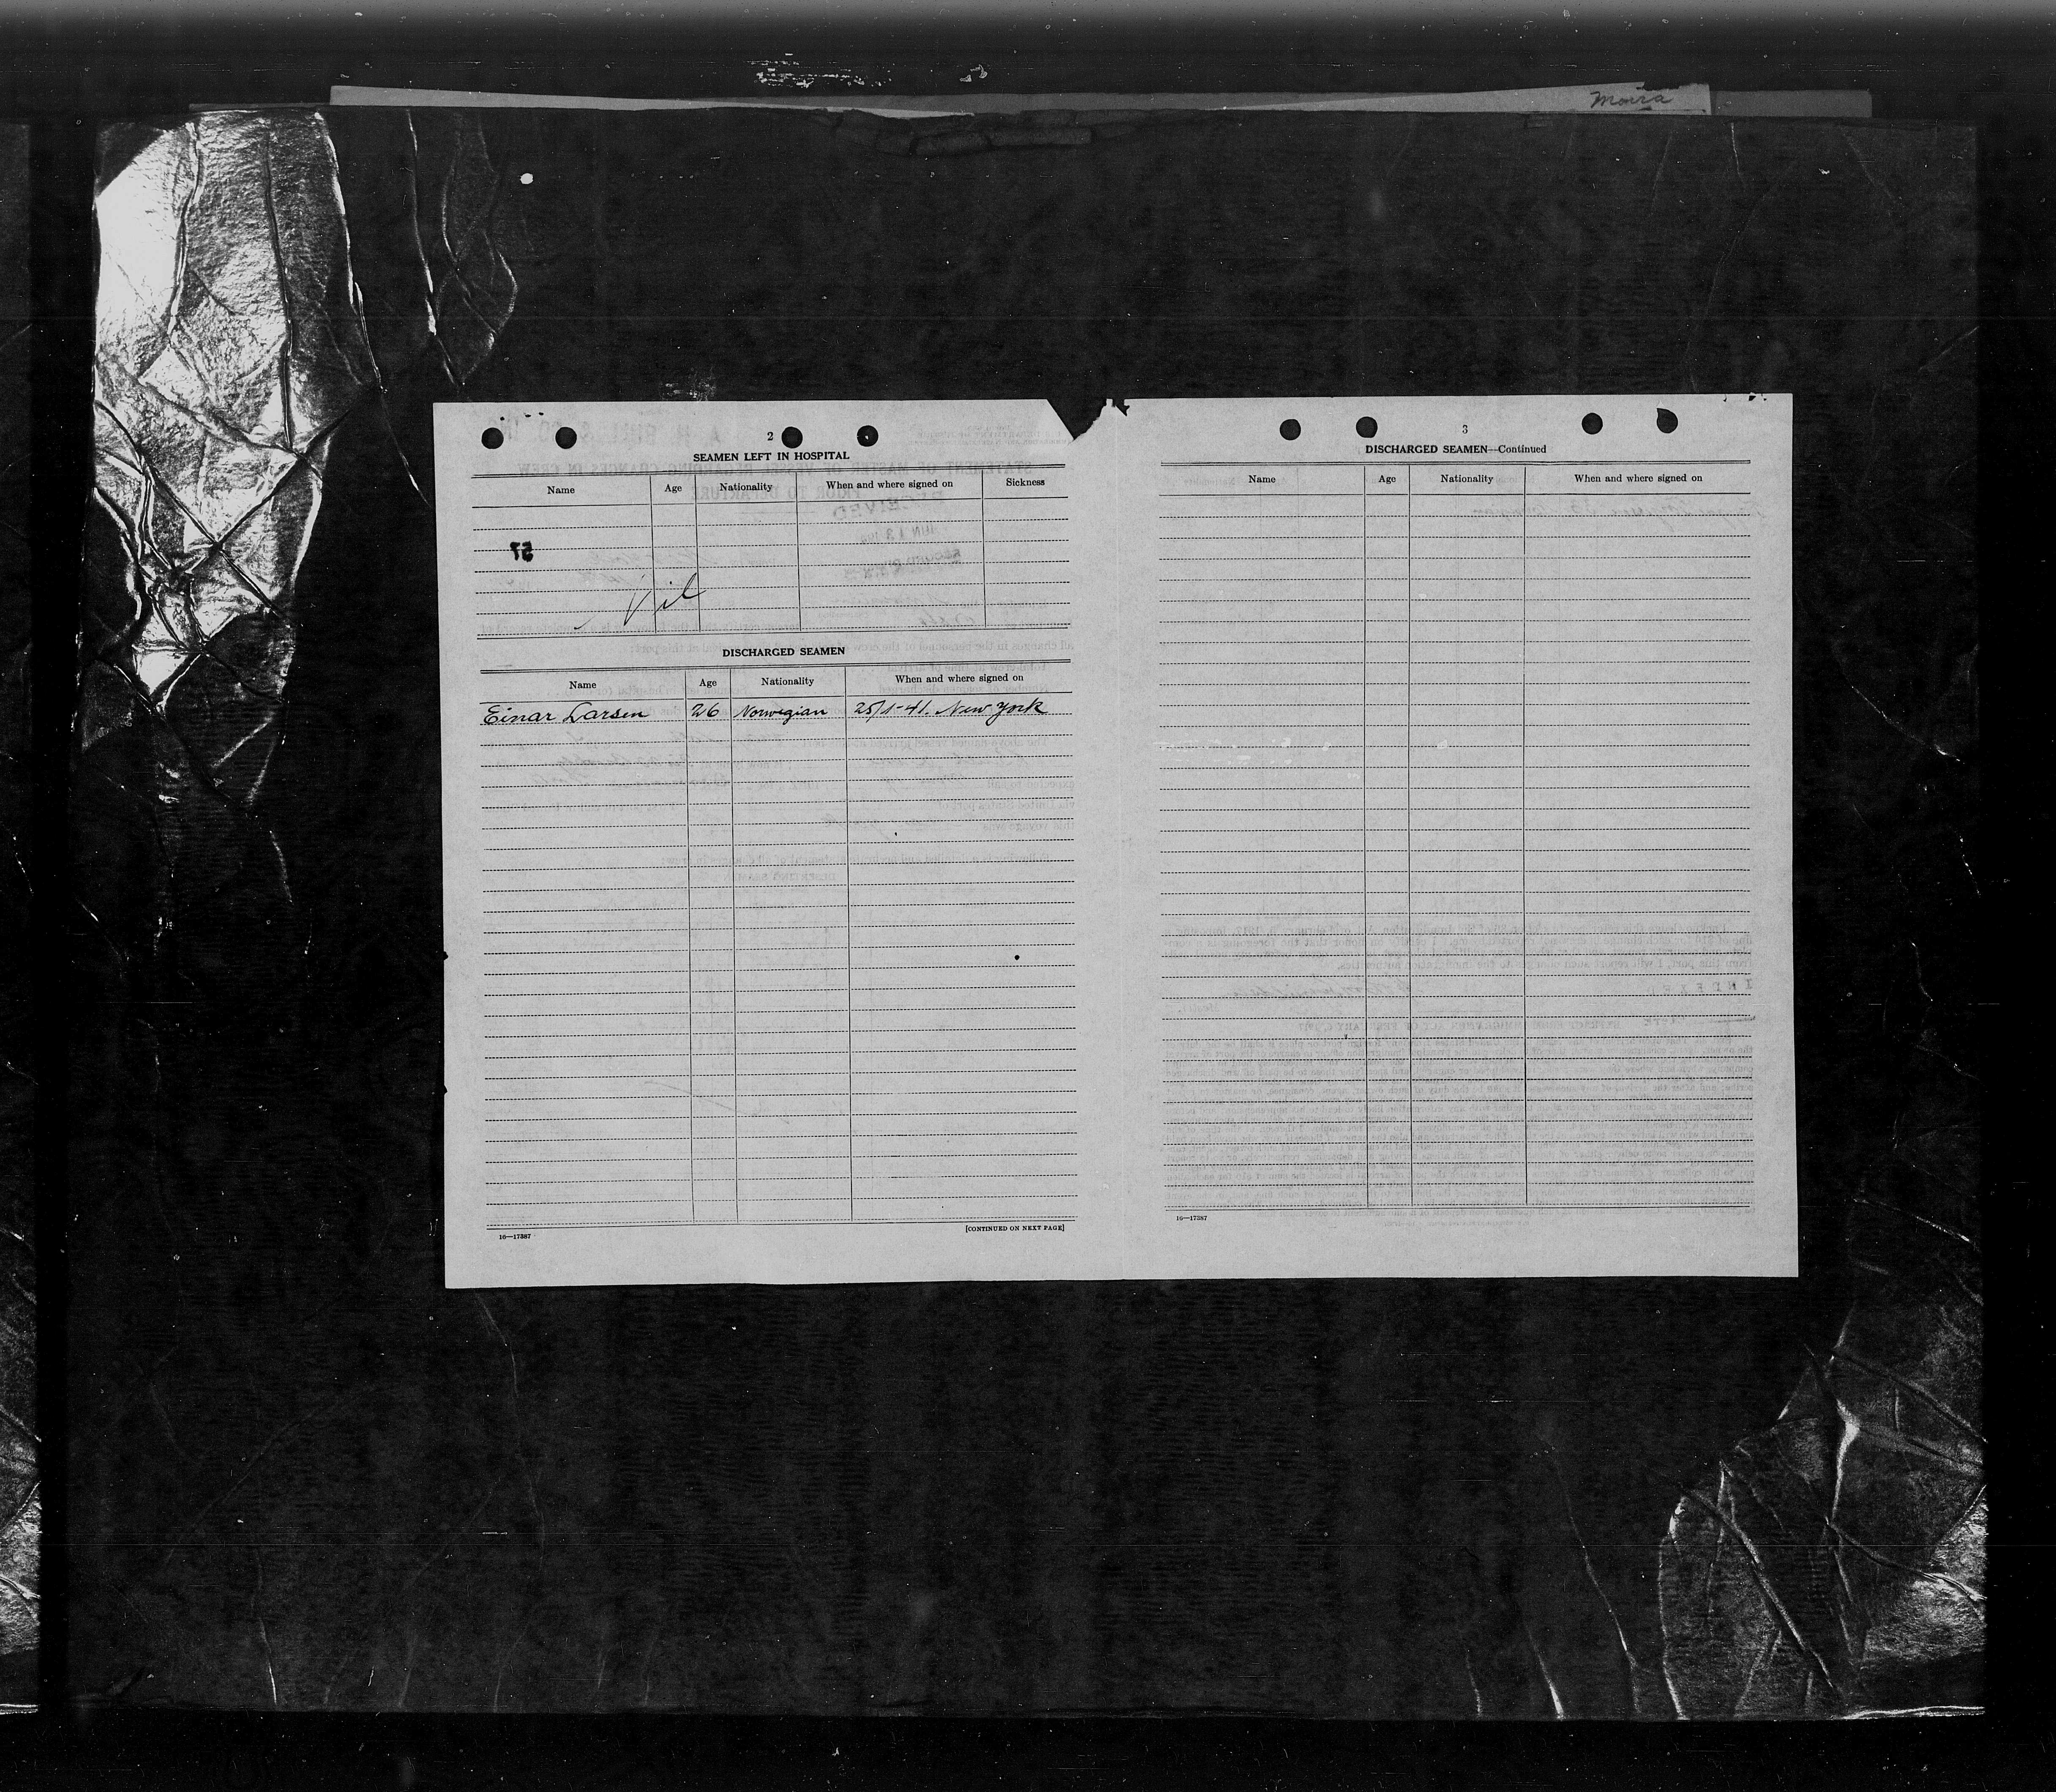 Moira
2
SEAMEN LEFT IN HOSPITAL
Name Age Nationality When and where signed on Sickness
57
Nil
DISCHARGED SEAMEN
Name Age Nationality When and where signed on
Einar Larsen 26 Norwegian 25/1-41. New York
[CONTINUED ON NEXT PAGE]
16—17387
3
DISCHARGED SEAMEN—Continued
Name Age Nationality When and where signed on
16—17387